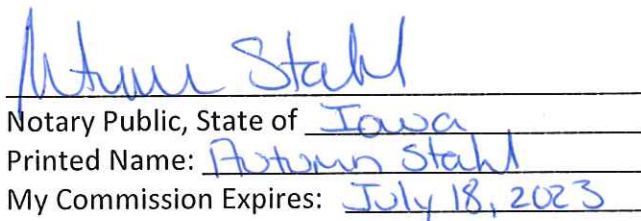 Autumn Stahl
Notary Public, State of Iowa
Printed Name: Autumn Stahl
My Commission Expires: July 18, 2023